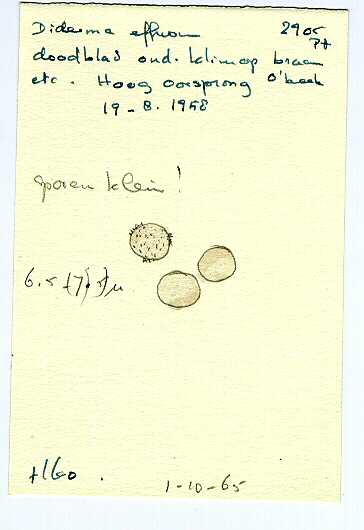 Diderma effusum 2905
doodblad ond. klimop braam
etc. Hoog Oorsprong O'beek
19-8.1958
sporen klein!
6.5
1-10-65